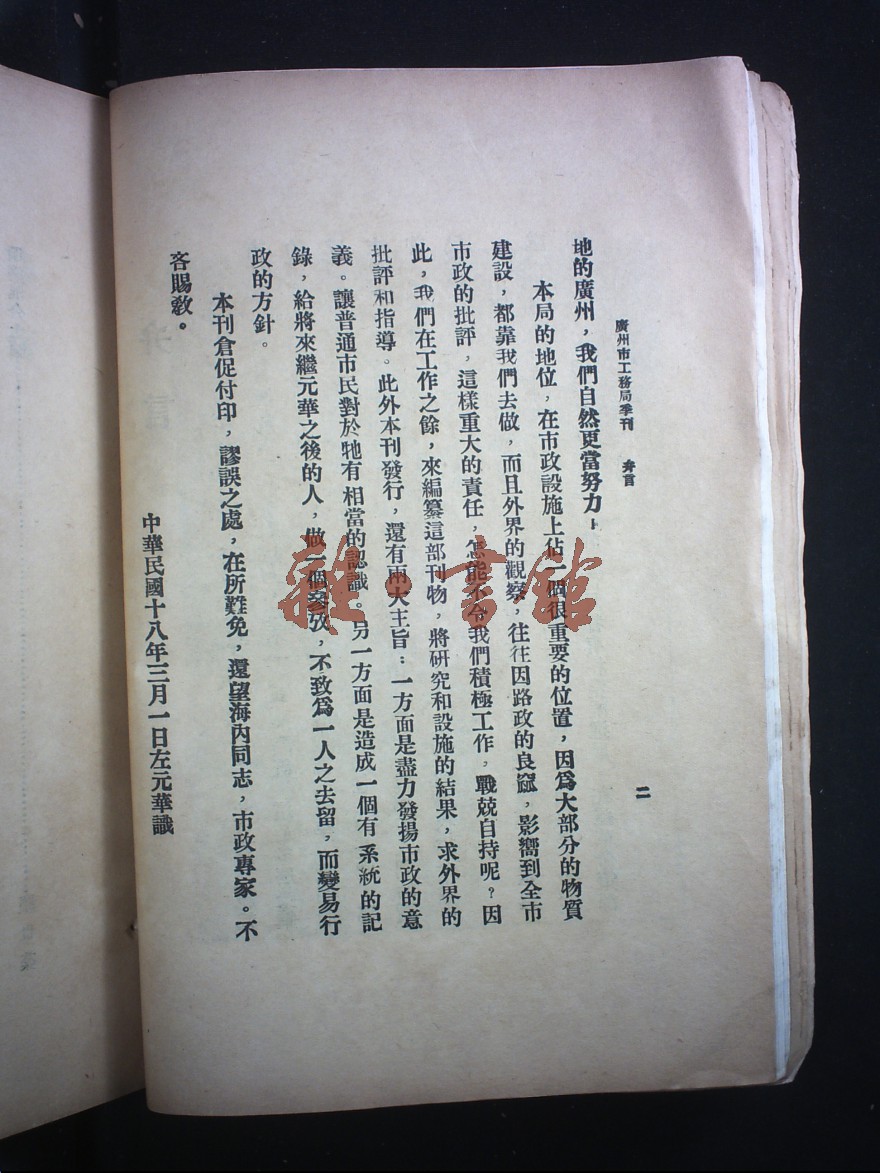 廣州市工務局季刊　弁言
二
地的廣州，我們自然更當努力！
本局的地位，在市政設施上佔一個很重要的位置，因爲大部分的物質
建設，都靠我們去做，而且外界的觀察，往往因路政的良窳，影嚮到全市
市政的批評，這樣重大的責任，怎能不令我們積極工作，戰兢自持呢？因
此，我們在工作之餘，來編纂這部刊物，將研究和設施的結果，求外界的
批評和指導。此外本刊發行，還有兩大主旨：一方面是盡力發揚市政的意
義。讓普通市民對於牠有相當的認識。另一方面是造成一個有系統的記
錄，給將來繼元華之後的人，做一個參攷，不致爲一人之去留，而變易行
政的方針。
本刊倉促付印，謬誤之處，在所難免，還望海內同志，市政專家。不
吝賜敎。
中華民國十八年三月一日左元華識
雜·書館